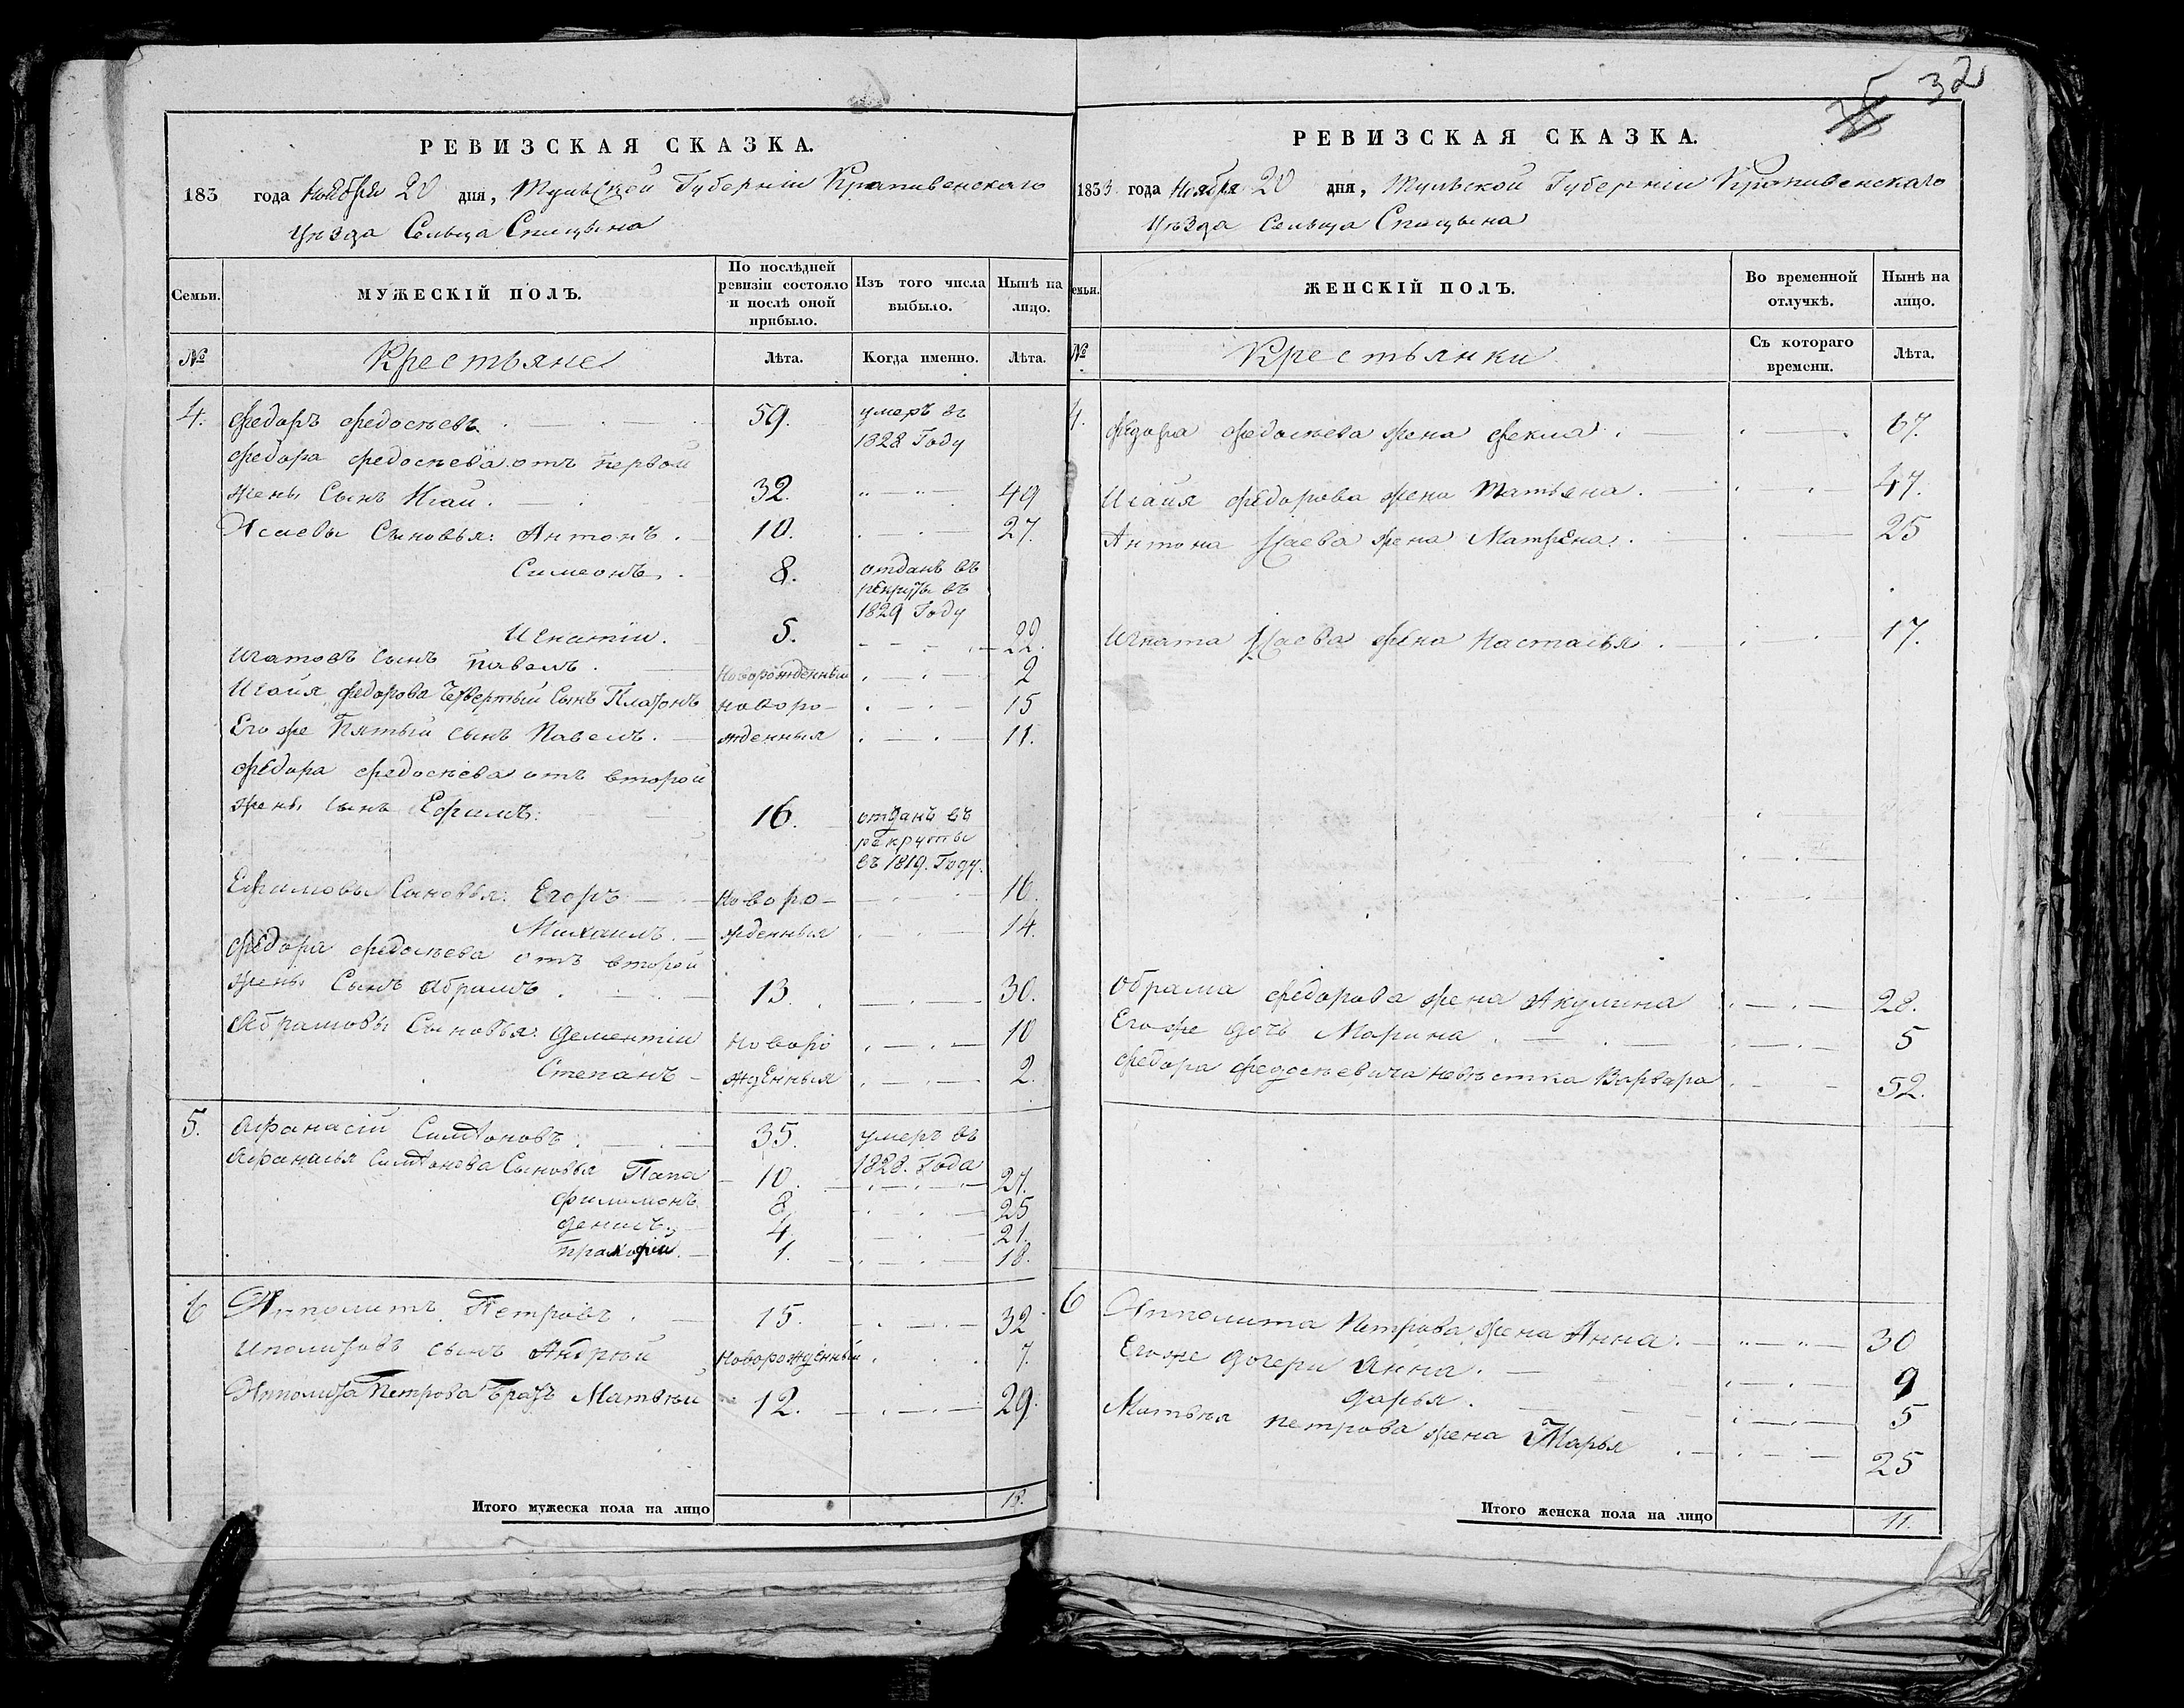 32
РЕВИЗСКАЯ СКАЗКА.
183 года Ноября 20 дня, Тульской Губернiи Крапивенскаго
Уѣзда Сельца Спицына
Семьи. МУЖЕСКIЙ ПОЛЪ. По послѣдней ревизiи состояло и послѣ оной прибыло. Изъ того числа выбыло. Нынѣ на лицо.
№ Крестьяне Лѣта. Когда именно. Лѣта.
4. Федоръ Федосѣевъ 59. умеръ въ
1828 Году
Федора Федосѣева отъ первой
жены Сынъ Исаи. 32. 49
Исаевы Сыновья: Антонъ. 10. 27.
Симеонъ. 8. отданъ въ
рекруты въ
1829 Году
Игнатiи. 5. 22.
Игатовъ сынъ Павелъ. Новорожденный 2
Исайя Федорова Четвертый Сынъ Платонъ новоро- 15
Его же Пятый сынъ Павелъ. жденныя 11.
Федора Федосѣева отъ второй
жены сынъ Ефимъ: 16. отданъ въ
рекруты
въ 1819. Году.
Ефимовы Сыновья: Егоръ Новоро- 16.
Михаилъ. жденныя 14.
Федора Федосѣева отъ второй
жены Сынъ Абрамъ. 13. 30.
Абрамовы Сыновья: Дементiи Новоро 10
Степанъ жденныя 2.
5. Афанасiй Симѣоновъ. 35. умеръ въ
1828. Года
Афанасья Симѣонова Сыновья Папа 10. 27.
Филимонъ 8. 25
Денисъ. 4. 21.
Пракофiи. 1. 18.
6 Ипполитъ Петровъ. 15. 32
Иполитовъ сынъ Андрѣй Новорожденный 7.
Ипполита Петрова братъ Матвѣй 12. 29.
Итого мужеска пола на лицо 18.
РЕВИЗСКАЯ СКАЗКА.
1833. года Ноября 20 дня, Тульской Губернiи Крапивенскаго
Уѣзда Сельца Спицына
Семьи. ЖЕНСКIЙ ПОЛЪ. Во временной отлучкѣ. Нынѣ на лицо.
№ Крестьянки Съ котораго времени. Лѣта.
4. Федора Федосѣева жена Фекла. 67.
Исайя Федорова жена Татьяна. 47.
Антона Исаева жена Матрена. 25
Игната Исаева жена Настасья. 17.
Обрама Федорова жена Акулина 28.
Егоже дочь Марина. 5
Федора Федосѣевича невѣстка Варвара 52.
6 Ипполита Петрова жена Анна. 30
Егоже дочери Анна. 9
Дарья. 5
Матвѣя Петрова жена Марья 25
Итого женска пола на лицо 11.